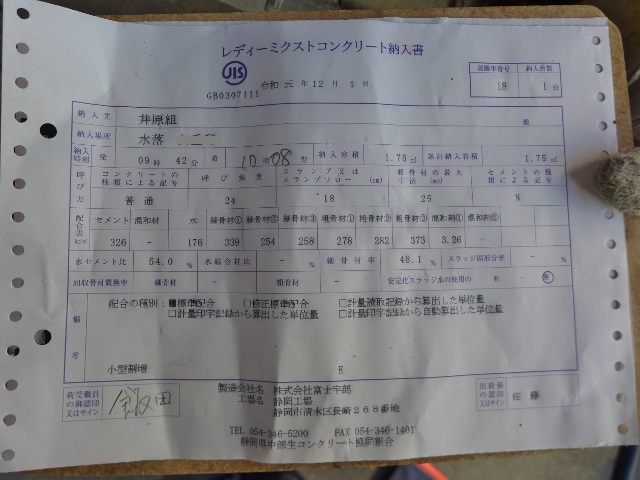 レディーミクストコンクリート納入書
JIS
GB0307111
令和 元 年 12 月 4 日
運搬車番号 納入台数
18 1 台
納入先 井原組 殿
納入場所 水落
納入時刻 発 09時 42分 着 10時08分 納入容積 1.75㎥ 累計納入容積 1.75㎥
呼び方 コンクリートの種類による記号 呼び強度 スランプ又はスランプフロー(cm) 粗骨材の最大寸法(mm) セメントの種類による記号
普通 24 18 25 N
配合表kg/㎥ セメント 混和材 水 細骨材① 細骨材② 細骨材③ 粗骨材① 粗骨材② 粗骨材③ 混和剤① 混和剤②
326 - 176 339 254 258 278 282 373 3.26 -
水セメント比 54.0 % 水結合材比 - % 細骨材率 48.1 % スラッジ固形分率 - %
回収骨材置換率 細骨材 - 粗骨材 - 安定化スラッジ水の使用の 有・無
備考
配合の種別:■標準配合 □修正標準配合 □計量読取記録から算出した単位量
□計量印字記録から算出した単位量 □計量印字記録から自動算出した単位量
小型割増 E
荷受職員の御認印又はサイン 飯田
製造会社名 株式会社富士宇部
工場名 静岡工場
静岡市清水区長崎268番地
出荷係の認印又はサイン 佐藤
TEL 054-346-5200 FAX 054-346-1401
静岡県中部生コンクリート協同組合